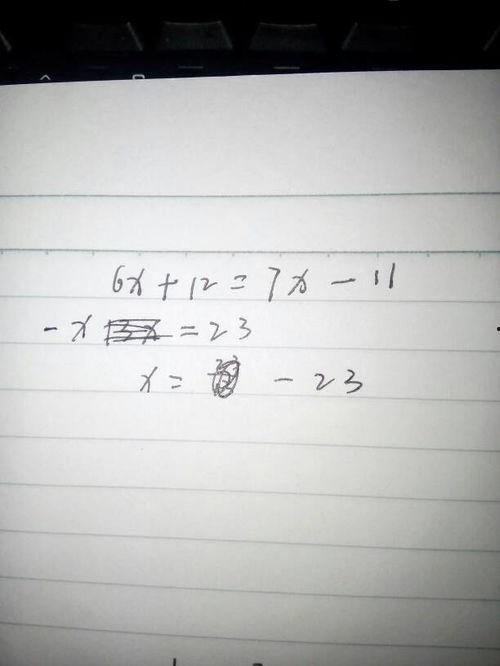 6x+12=7x-11
-x=23
x=-23